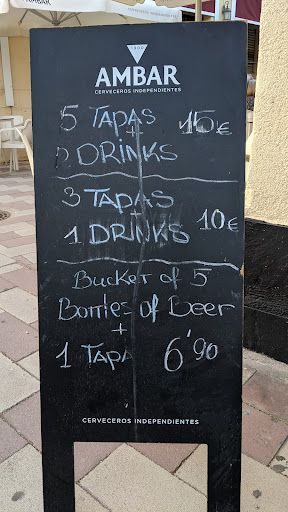 AMBAR
1900
AMBAR
CERVECEROS INDEPENDIENTES
5 TAPAS 15€
+
2 DRINKS
3 TAPAS
+
10€
1 DRINKS
Bucket of 5
Bottles of Beer
+
1 TAPA 6'90
CERVECEROS INDEPENDIENTES